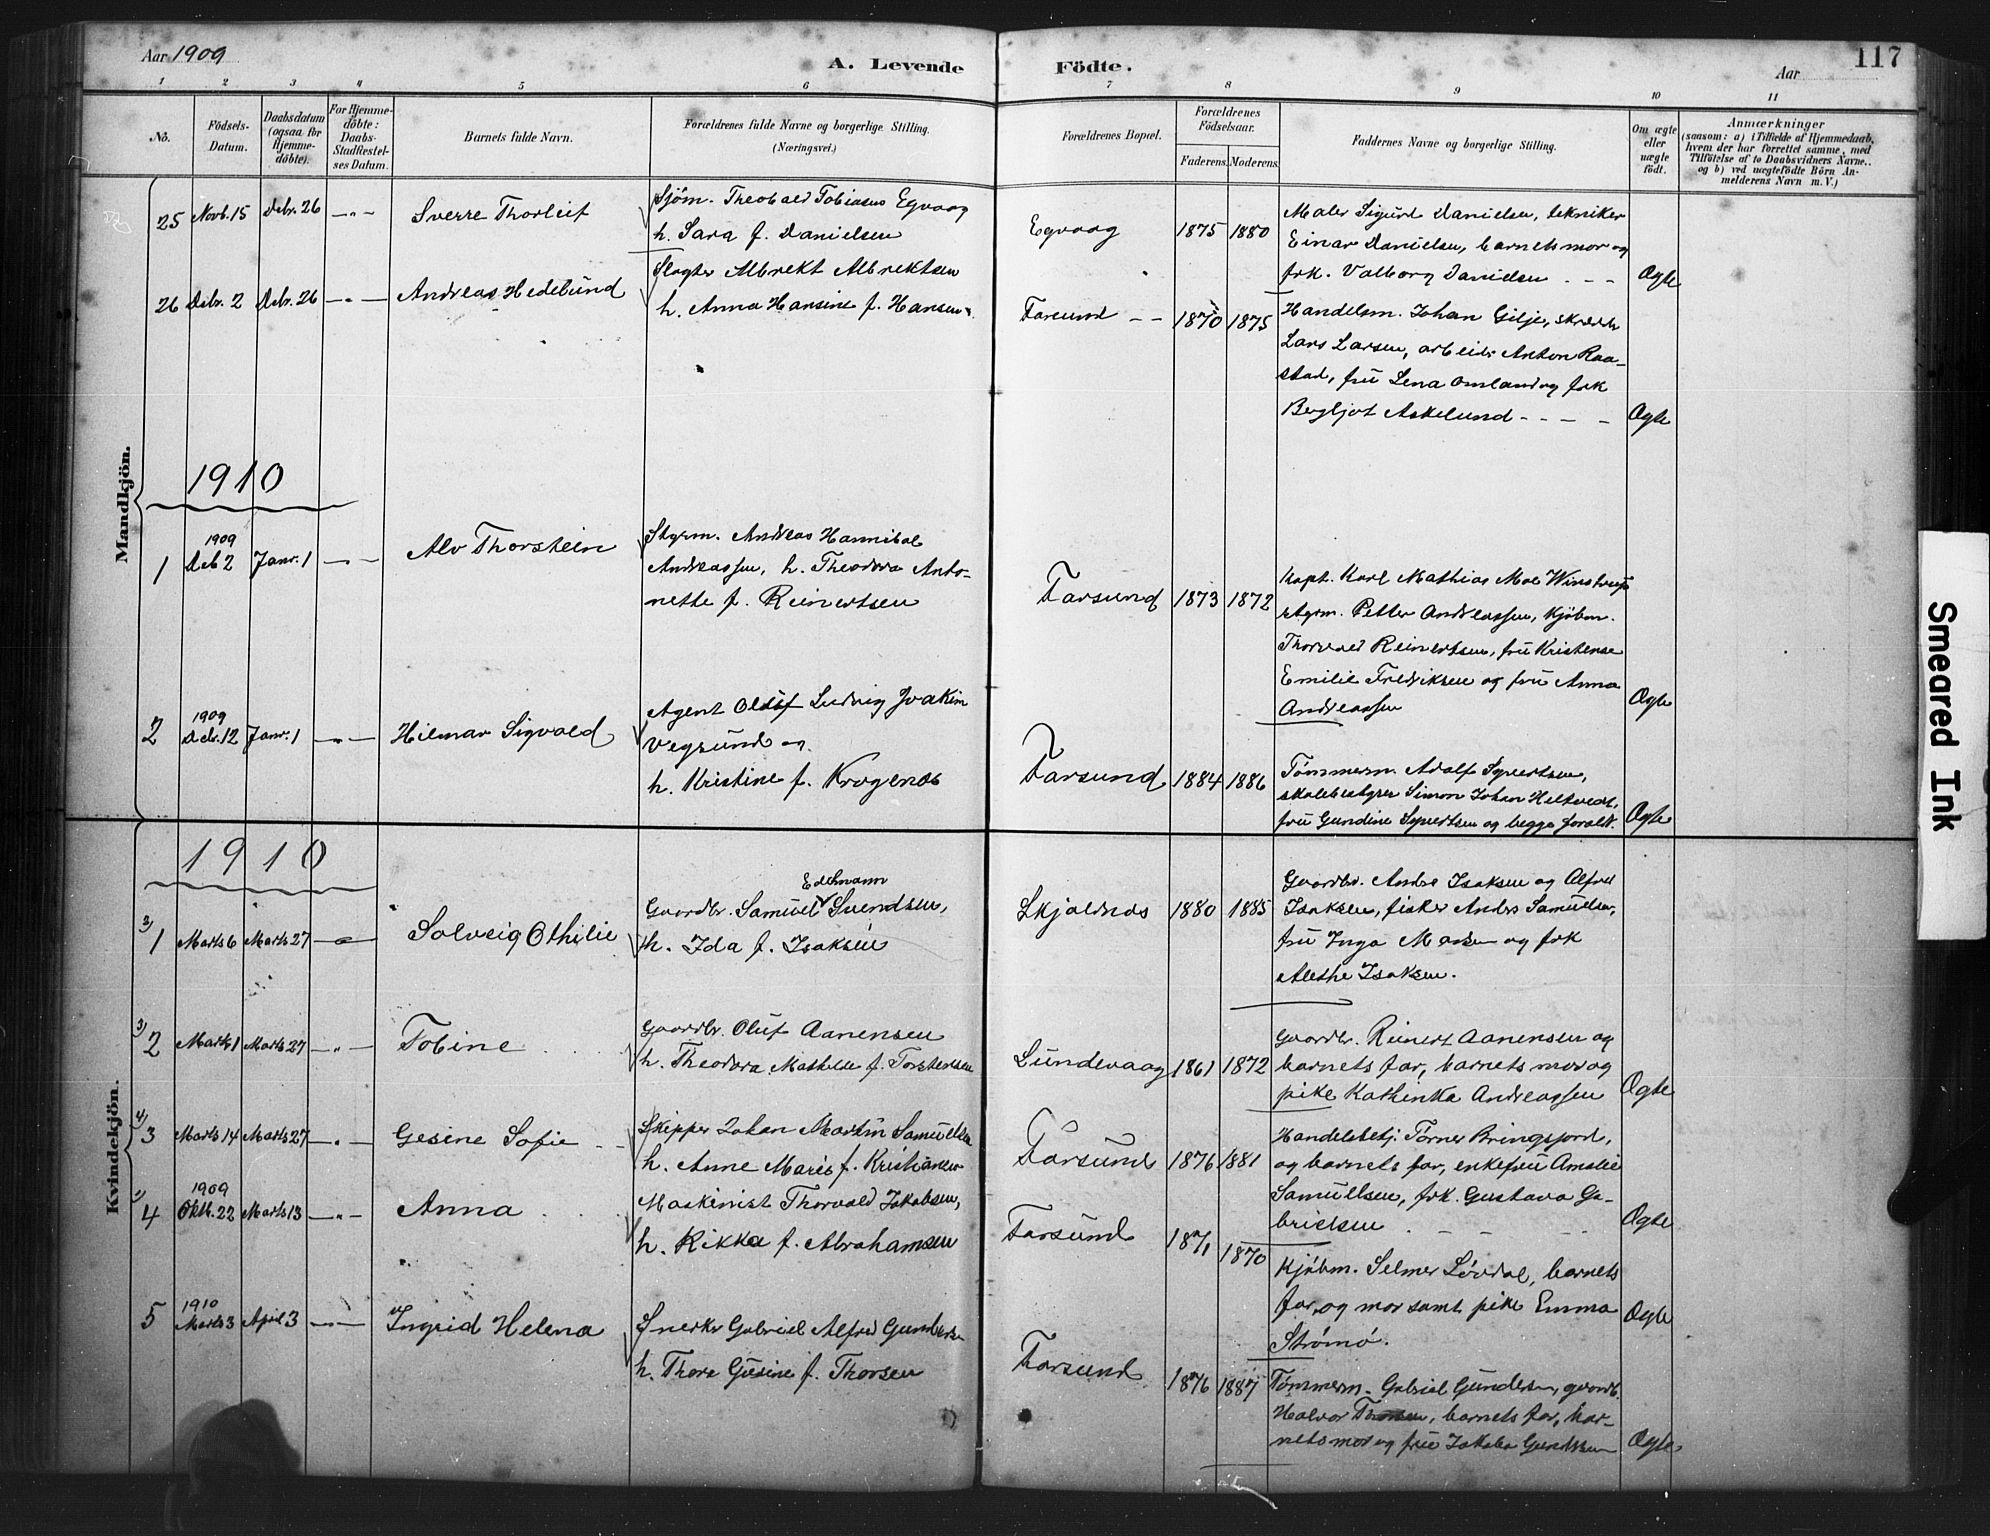 Aar 1909
A. Levende Födte.
Aar
117
1 2 3 4 5 6 7 8 9 10 11
No.
Födsels-
Datum.
Daabsdatum
(ogsaa for
Hjemme-
döbte).
For Hjemme-
döbte:
Daabs-
Stadfæstel-
ses Datum.
Barnets fulde Navn.
Forældrenes fulde Navne og borgerlige Stilling.
(Næringsvei.)
Forældrenes Bopæl.
Forældrenes
Födselsaar.
Faderens. Moderens.
Faddernes Navne og borgerlige Stilling.
Om ægte
eller
uægte
födt.
Anmærkninger
(saasom: a) i Tilfælde af Hjemmedaab,
hvem der har forrettet samme, med
Tilföielse af to Daabsvidners Navne..
og b) ved uægtefödte Börn An-
melderens Navn m. V.)
Mandkjön.
25 Novb. 15 Debr. 26 -"- Sverre Thorleif
Sjöm. Theobald Tobiasus Egvaag
h. Sara f. Danielsen
Egvaag 1875 1880
Maler Sigurd Danielsen, tekniker
Einar Danielsen, barnets mor og
frk. Valborg Danielsen - - - Ægte
26 Debr. 2 Debr. 26 -"- Andreas Hedelund
Slagter Albrekt Albrektsen
h. Anna Hansine f. Hansen.
Farsund - - 1870 1875
Handelsm. Johan Gilje, skrædder
Lars Larsen, arbeider Anton Raa-
stad, fru Lena Omland og frk
Bergljot Askelund - - - - Ægte
1910
1 1909
Deb 2 Janr. 1 -"- Alv Thorstein
Styrm. Andreas Hannibal
Andreassen, h. Theodora Anto-
nette f. Reinertsen
Farsund 1873 1872
Kapt. Karl Mathias Moe Winstrup
styrm. Petter Andreassen, Kjöbm.
Thorvald Reinertsen, fru Kristense
Emilie Fredriksen og fru Anna
Andreassen Ægte
2 1909
Debr. 12 Janr. 1 -"- Hilmar Sigvald
Agent Oluf Ludvig Joakim
Vegsund og
h. Kristine f. Krogenes
Farsund 1884 1886
Tømmerm. Adolf Syvertsen,
skolebestyrer Simon Johan Heltvedt,
fru Gundine Syvertsen og begge foræld. Ægte
Kvindekjön.
1910
3/ 1 Marts 6 Marts 27 -"- Solveig Othilie
Edelmann
Gaardbr. Samuel Svendsen,
h. Ida f. Isaksen
Skjoldnes 1880 1885
Gaardbr. Andre Isaksen og Alfred
Isaksen, fisker Andrs Samuelsen,
fru Inga og frk
Alethe Isaksen.
3/ 2 Marts 1 Marts 27 -"- Tobine
Gaardbr. Oluf Aanensen
h. Theodora Mathilde f. Torstensen
Lundevaag 1861 1872
Gaardbr. Reinert Aanensen og
barnets far, barnets mor og
pike Kathinka Andreassen Ægte
4/ 3 Marts 14 Marts 27 -"- Gesine Sofie
Skipper Johan Martin Samuelsen
h. Anne Marie f. Kristiansen
Farsund 1876 1881
Handelsbetj. Tørner Bringsjord,
og barnets far, enkefru Amalie
Samuelsen, frk. Gustava Ga-
brielsen Ægte
1/ 4 1909
Oktb. 22 Marts 13 -"- Anna
Maskinist Thorvald Jakobsen,
h. Rikka f. Abrahamsen
Farsund 1871 1870
Kjöbm. Selmer Lövdal, barnets
far, og mor samt pike Emma
Strömö. Ægte
5 1910
Marts 3 April 3 -"- Ingrid Helena
Snerker Gabriel Alfred Gundersen
h. Thora Gusine f. Thorsen
Farsund 1876 1887
Tømmerm. Gabriel Gundersen, gaardb.
Halvor Thorsen, barnets far, bar-
nets mor og frue Jakoba Gundersen Ægte.
Smeared Ink